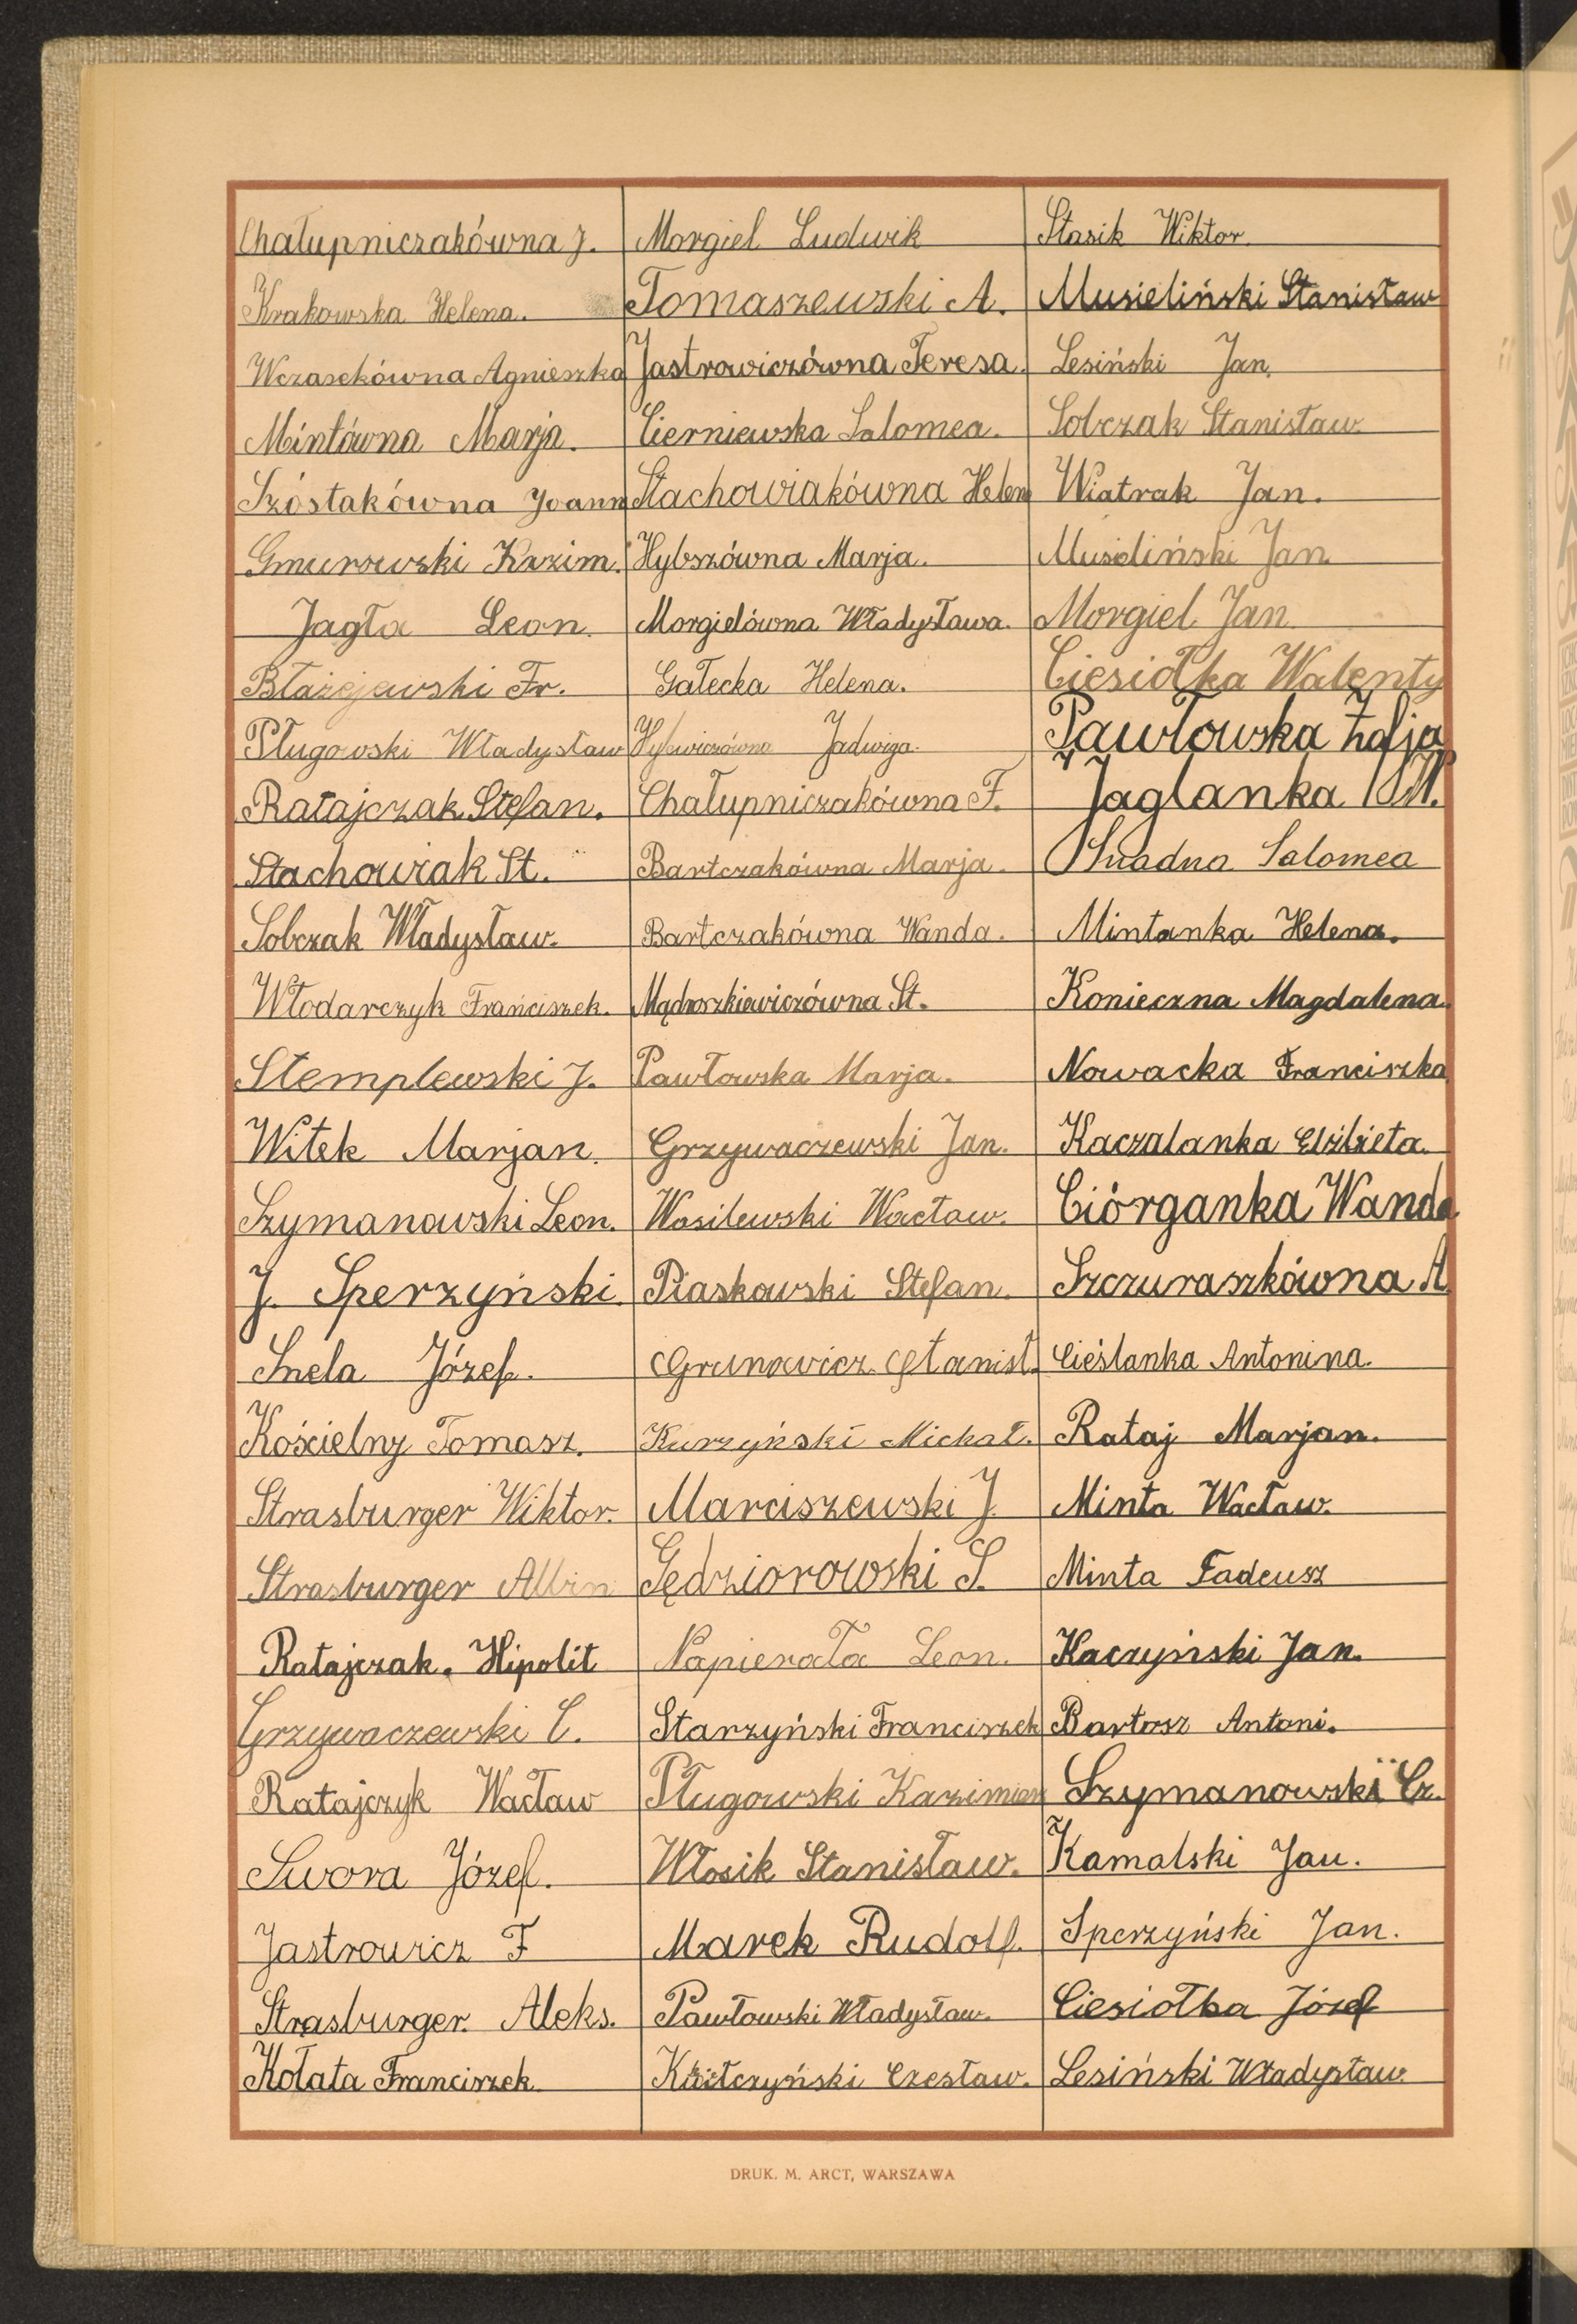 Chałupniczakówna J.
Krakowska Helena.
Wczasekówna Agnieszka
Mintówna Marja.
Szóstakówna Joann
Gmurowski Kazim.
Jagła Leon.
Błażejewski Fr.
Pługowski Władysław
Ratajczak Stefan.
Stachowiak St.
Sobczak Władysław.
Włodarczyk Franciszek.
Stemplewski J.
Witek Marjan.
Szymanowski Leon.
J. Sperzyński.
Snela Józef.
Kościelny Tomasz.
Strasburger Wiktor.
Strasburger Albin
Ratajczak. Hipolit
Grzywaczewski C.
Ratajczyk Wacław
Swora Józef.
Jastrowicz F
Strasburger. Aleks.
Kołata Franciszek.
Morgiel Ludwik
Tomaszewski A.
Jastrowiczówna Teresa.
Cierniewska Salomea.
Stachowiakówna Helen
Hybszówna Marja.
Morgielówna Władysława.
Gałecka Helena.
Jadwiga.
Chałupniczakówna F.
Bartczakówna Marja.
Bartczakówna Wanda.
Mądroszkiewiczówna St.
Pawłowska Marja.
Grzywaczewski Jan.
Wasilewski Wacław.
Piaskowski Stefan.
Grunowicz Stanisł.
Kurzyński Michał.
Marciszewski J.
Gędziorowski S.
Napierała Leon.
Starzyński Franciszek
Pługowski Kazimierz
Włosik Stanisław.
Marek Rudolf.
Pawłowski Władysław.
Czesław.
Stasik Wiktor.
Musieliński Stanisław
Lesiński Jan.
Sobczak Stanisław.
Wiatrak Jan.
Musieliński Jan.
Morgiel Jan.
Ciesiołka Walenty
Pawłowska Zofja
Jaglanka M.
Snadna Salomea
Mintanka Helena.
Konieczna Magdalena.
Nowacka Franciszka
Kaczalanka Elżbieta.
Ciórganka Wanda
Szczuraszkówna A.
Cieślanka Antonina.
Rataj Marjan.
Minta Wacław.
Minta Tadeusz
Kaczyński Jan.
Bartosz Antoni.
Szymanowski Cz.
Kamalski Jan.
Sperzyński Jan.
Ciesiołka Józef
Lesiński Władysław.
DRUK. M. ARCT, WARSZAWA